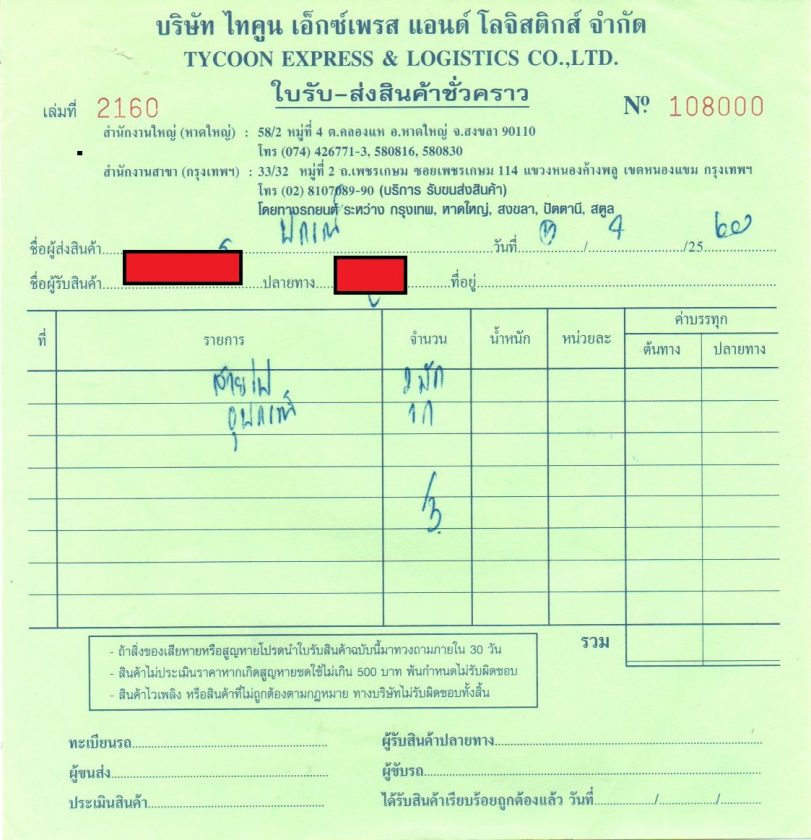 บริษัท ไทคูน เอ็กซ์เพรส แอนด์ โลจิสติกส์ จำกัด
TYCOON EXPRESS & LOGISTICS CO.,LTD.
ใบรับ-ส่งสินค้าชั่วคราว
เล่มที่ 2160 Nº 108000
สำนักงานใหญ่ (หาดใหญ่) : 58/2 หมู่ที่ 4 ต.คลองแห อ.หาดใหญ่ จ.สงขลา 90110
โทร (074) 426771-3, 580816, 580830
สำนักงานสาขา (กรุงเทพฯ) : 33/32 หมู่ที่ 2 ถ.เพชรเกษม ซอยเพชรเกษม 114 แขวงหนองค้างพลู เขตหนองแขม กรุงเทพฯ
โทร (02) 8107089-90 (บริการ รับขนส่งสินค้า)
โดยทางรถยนต์ ระหว่าง กรุงเทพ, หาดใหญ่, สงขลา, ปัตตานี, สตูล
ชื่อผู้ส่งสินค้า วันที่ / 4 /25 60
ชื่อผู้รับสินค้า ปลายทาง ที่อยู่
ที่ รายการ จำนวน น้ำหนัก หน่วยละ ค่าบรรทุก
ต้นทาง ปลายทาง
สายไฟ 2 มัด
อุปกรณ์ 1 ก
/3
รวม
- ถ้าสิ่งของเสียหายหรือสูญหายโปรดนำใบรับสินค้าฉบับนี้มาทวงถามภายใน 30 วัน
- สินค้าไม่ประเมินราคาหากเกิดสูญหายชดใช้ไม่เกิน 500 บาท พ้นกำหนดไม่รับผิดชอบ
- สินค้าไวเพลิง หรือสินค้าที่ไม่ถูกต้องตามกฎหมาย ทางบริษัทไม่รับผิดชอบทั้งสิ้น
ทะเบียนรถ ผู้รับสินค้าปลายทาง
ผู้ขนส่ง ผู้ขับรถ
ประเมินสินค้า ได้รับสินค้าเรียบร้อยถูกต้องแล้ว วันที่ / /